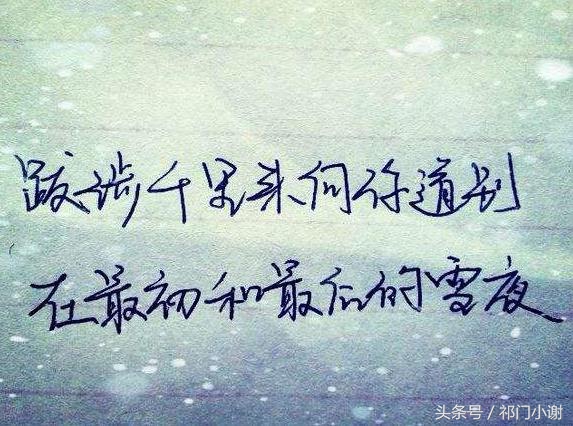 跋涉千里来向你道别
在最初和最后的雪夜
头条号／祁门小谢